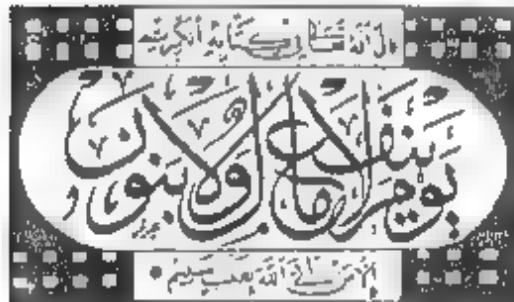 قال الله تعالى في كتابه الكريم
يوم لا ينفع مال ولا بنون
إلا من أتى الله بقلب سليم